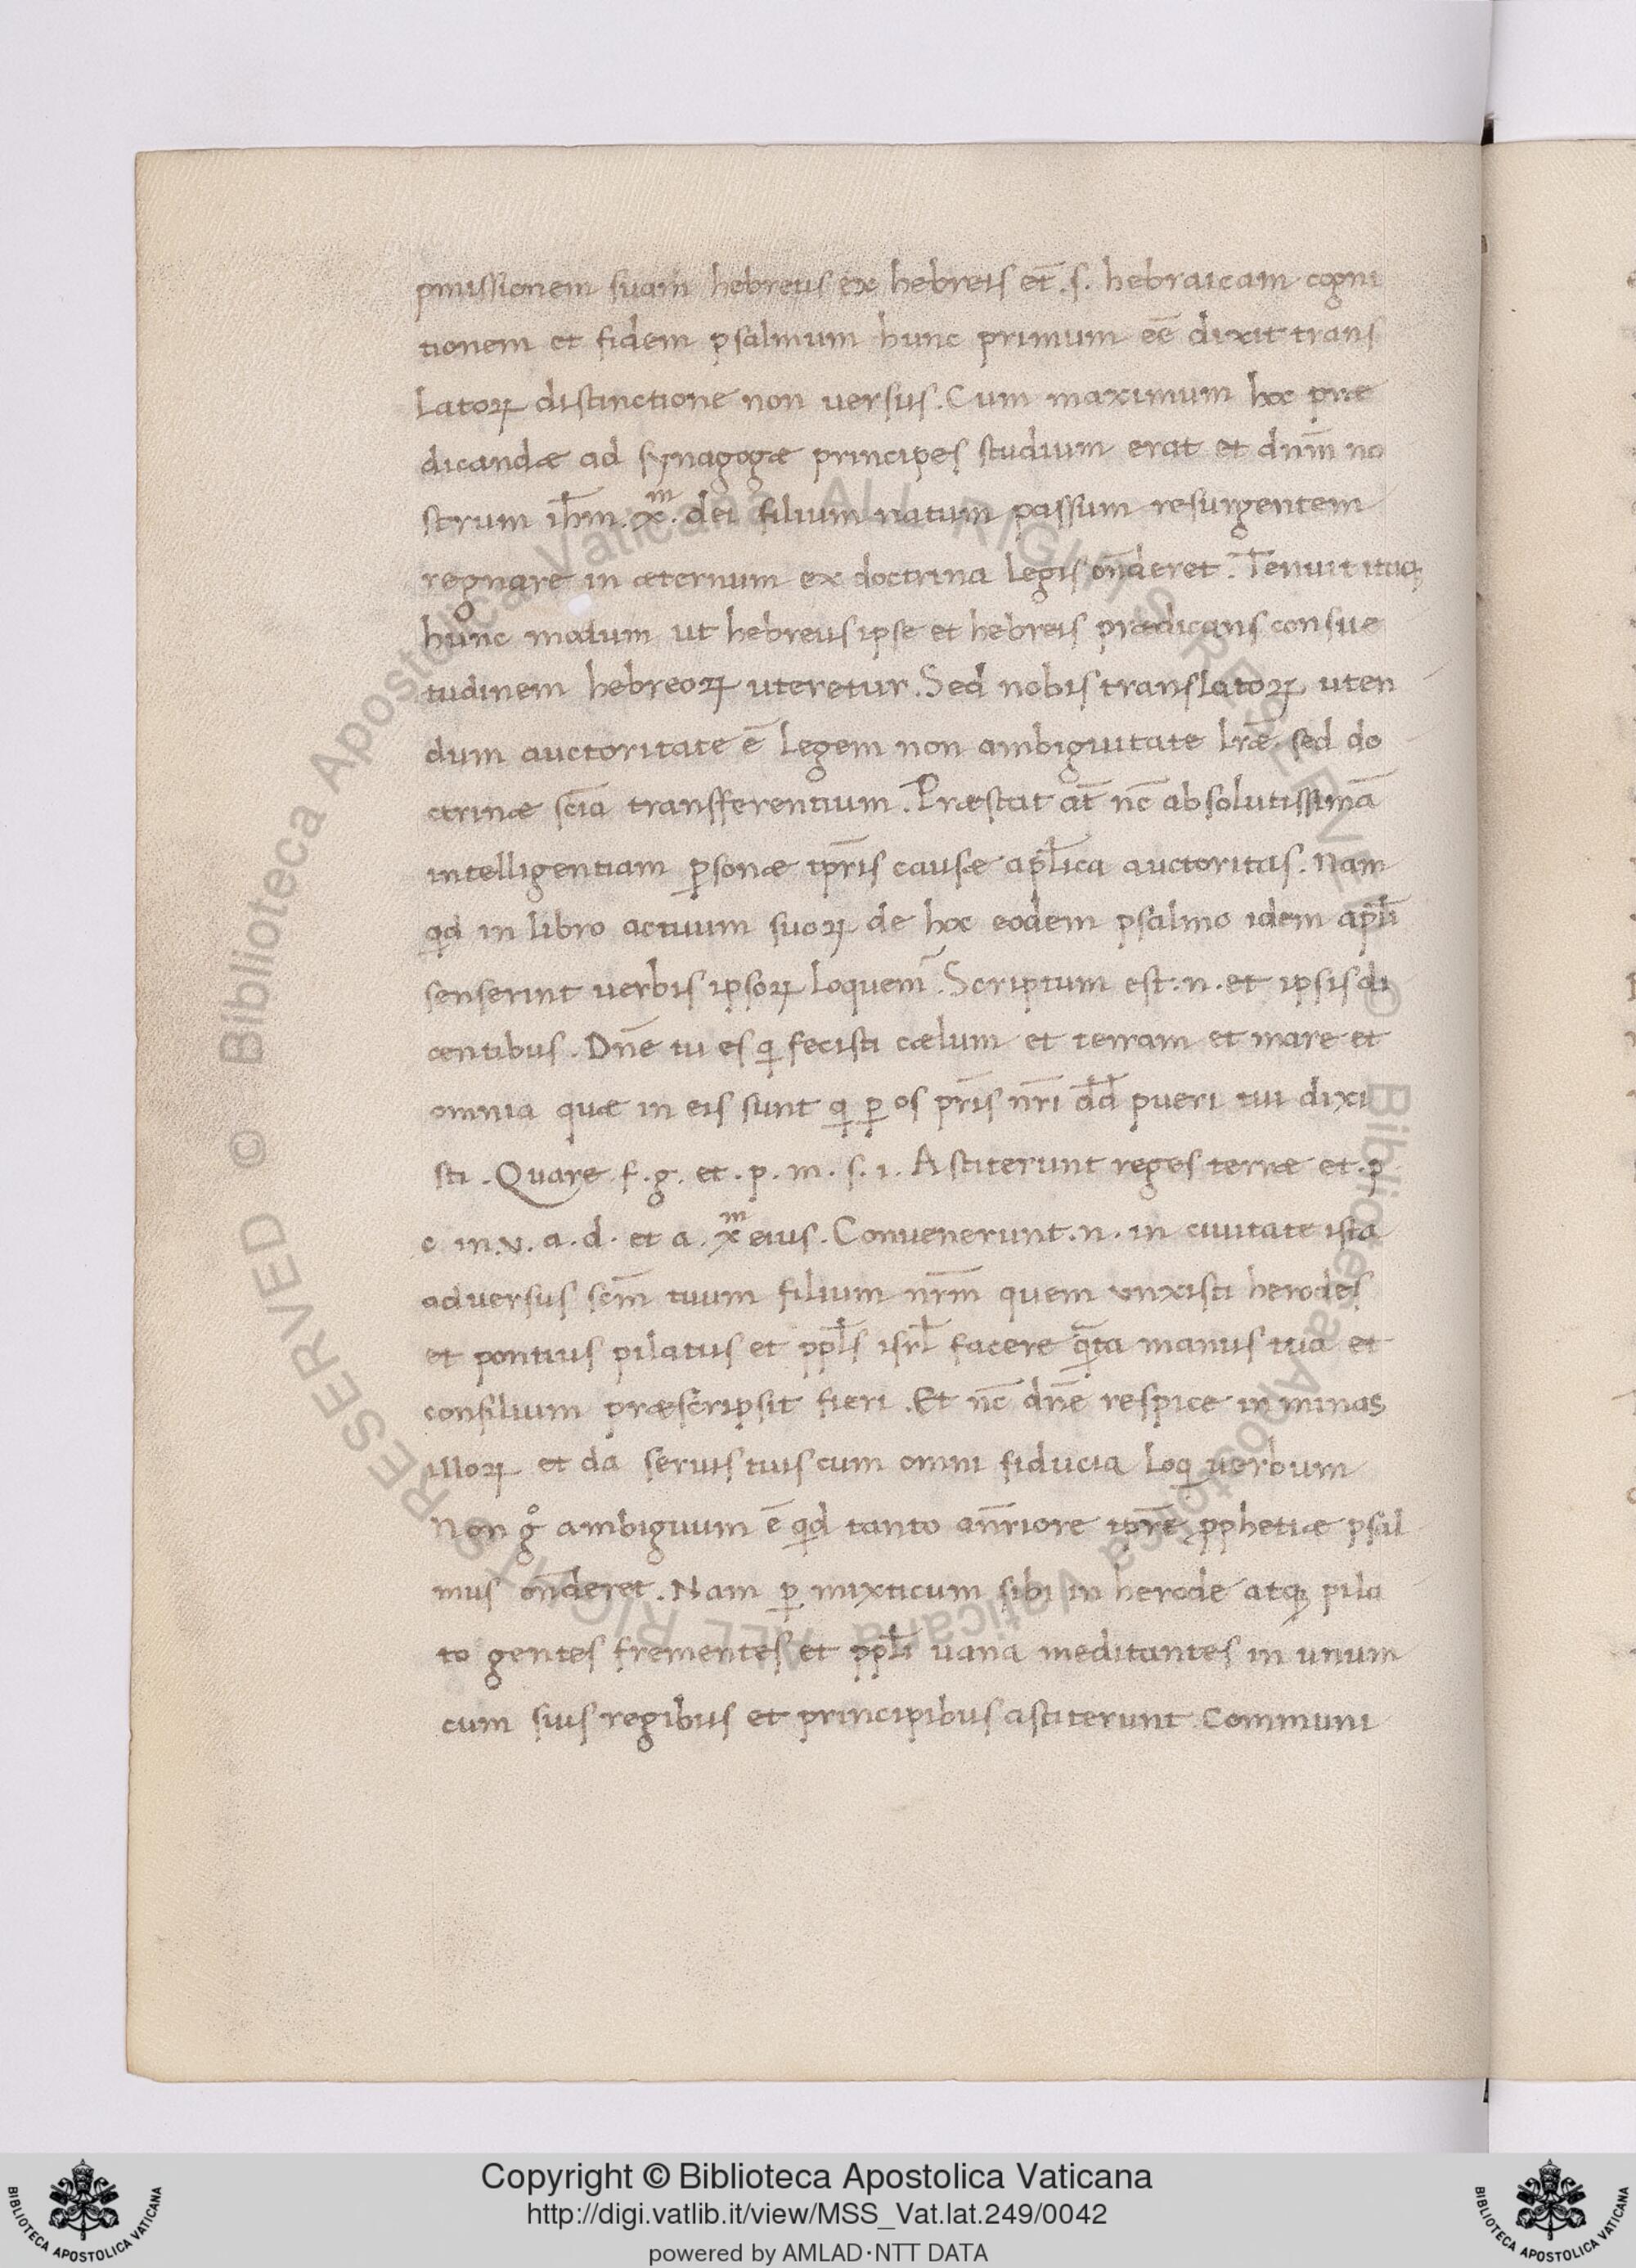 pmissionem suam hebreus ex hebreis et̄ .s. hebraicam cogni
tionem et fidem psalmum hunc primum eē dixit trans
latoꝝ distinctione non versus. Cum maximum hoc præ
dicandæ ad synagogæ principes studium erat et dnm̄ no
strum ih̄m. xͫ. dei filium natum passum resurgentem
regnare in æternum ex doctrina legis on̄deret. Tenuit itaqꝫ
hunc modum ut hebreus ipse et hebreis prædicans consue
tudinem hebreoꝝ uteretur. Sed nobis translatoꝝ uten
dum auctoritate ē legem non ambiguitate lr̄æ sed do
ctrinæ scīa transfferentium. Præstat at̄ nc̄ absolutissimā
intelligentiam ꝑsonæ tp̄ris causæ apl̄ica auctoritas. Nam
qd in libro actuum suoꝝ de hoc eodem psalmo idem apl̄i
senserint verbis ipsoꝝ loquem̄. Scriptum est .n. et ipsis di
centibus. Dn̄e tu es q fecisti cælum et terram et mare et
omnia quæ in eis sunt q ꝑ os pr̄is nr̄i dd̄ pueri tui dixi
sti. Quare f. g. et. p. m. s. i. Astiterunt reges terræ et. p.
c in. v. a. d. et a. xͫ eius. Convenerunt. n. in civitate ista
adversus scm̄ tuum filium nr̄m quem unxisti herodes
et pontius pilatus et ppl̄s isrl̄ facere qͣ̄ta manus tua et
consilium præscripsit fieri. Et nc̄ dn̄e respice in minas
illoꝝ et da servis tuis cum omni fiducia loq verbum
Non gͦ ambiguum ē qd tanto an̄riore tp̄re ꝓphetiæ psal
mus on̄deret. Nam ꝑ mixticum sibi in herode atqꝫ pila
to gentes frementes et ppl̄i vana meditantes in unum
cum suis regibus et principibus astiterunt communi
Copyright © Biblioteca Apostolica Vaticana
http://digi.vatlib.it/view/MSS_Vat.lat.249/0042
powered by AMLAD·NTT DATA
BIBLIOTECA APOSTOLICA VATICANA
BIBLIOTECA APOSTOLICA VATICANA
© Biblioteca Apostolica Vaticana ALL RIGHTS RESERVED © Biblioteca Apostolica Vaticana ALL RIGHTS RESERVED